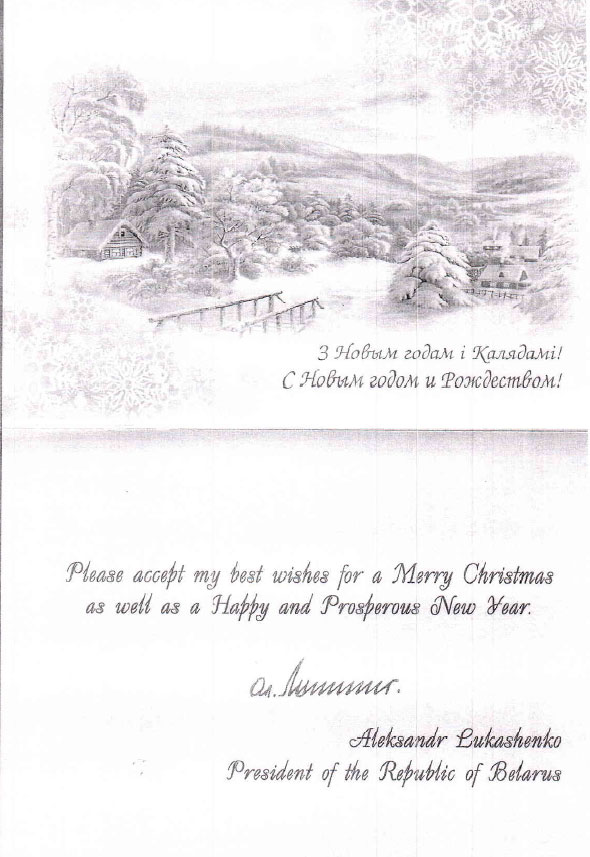 З Новым годам і Калядамі!
С Новым годом и Рождеством!
Please accept my best wishes for a Merry Christmas
as well as a Happy and Prosperous New Year.
Aleksandr Lukashenko
President of the Republic of Belarus